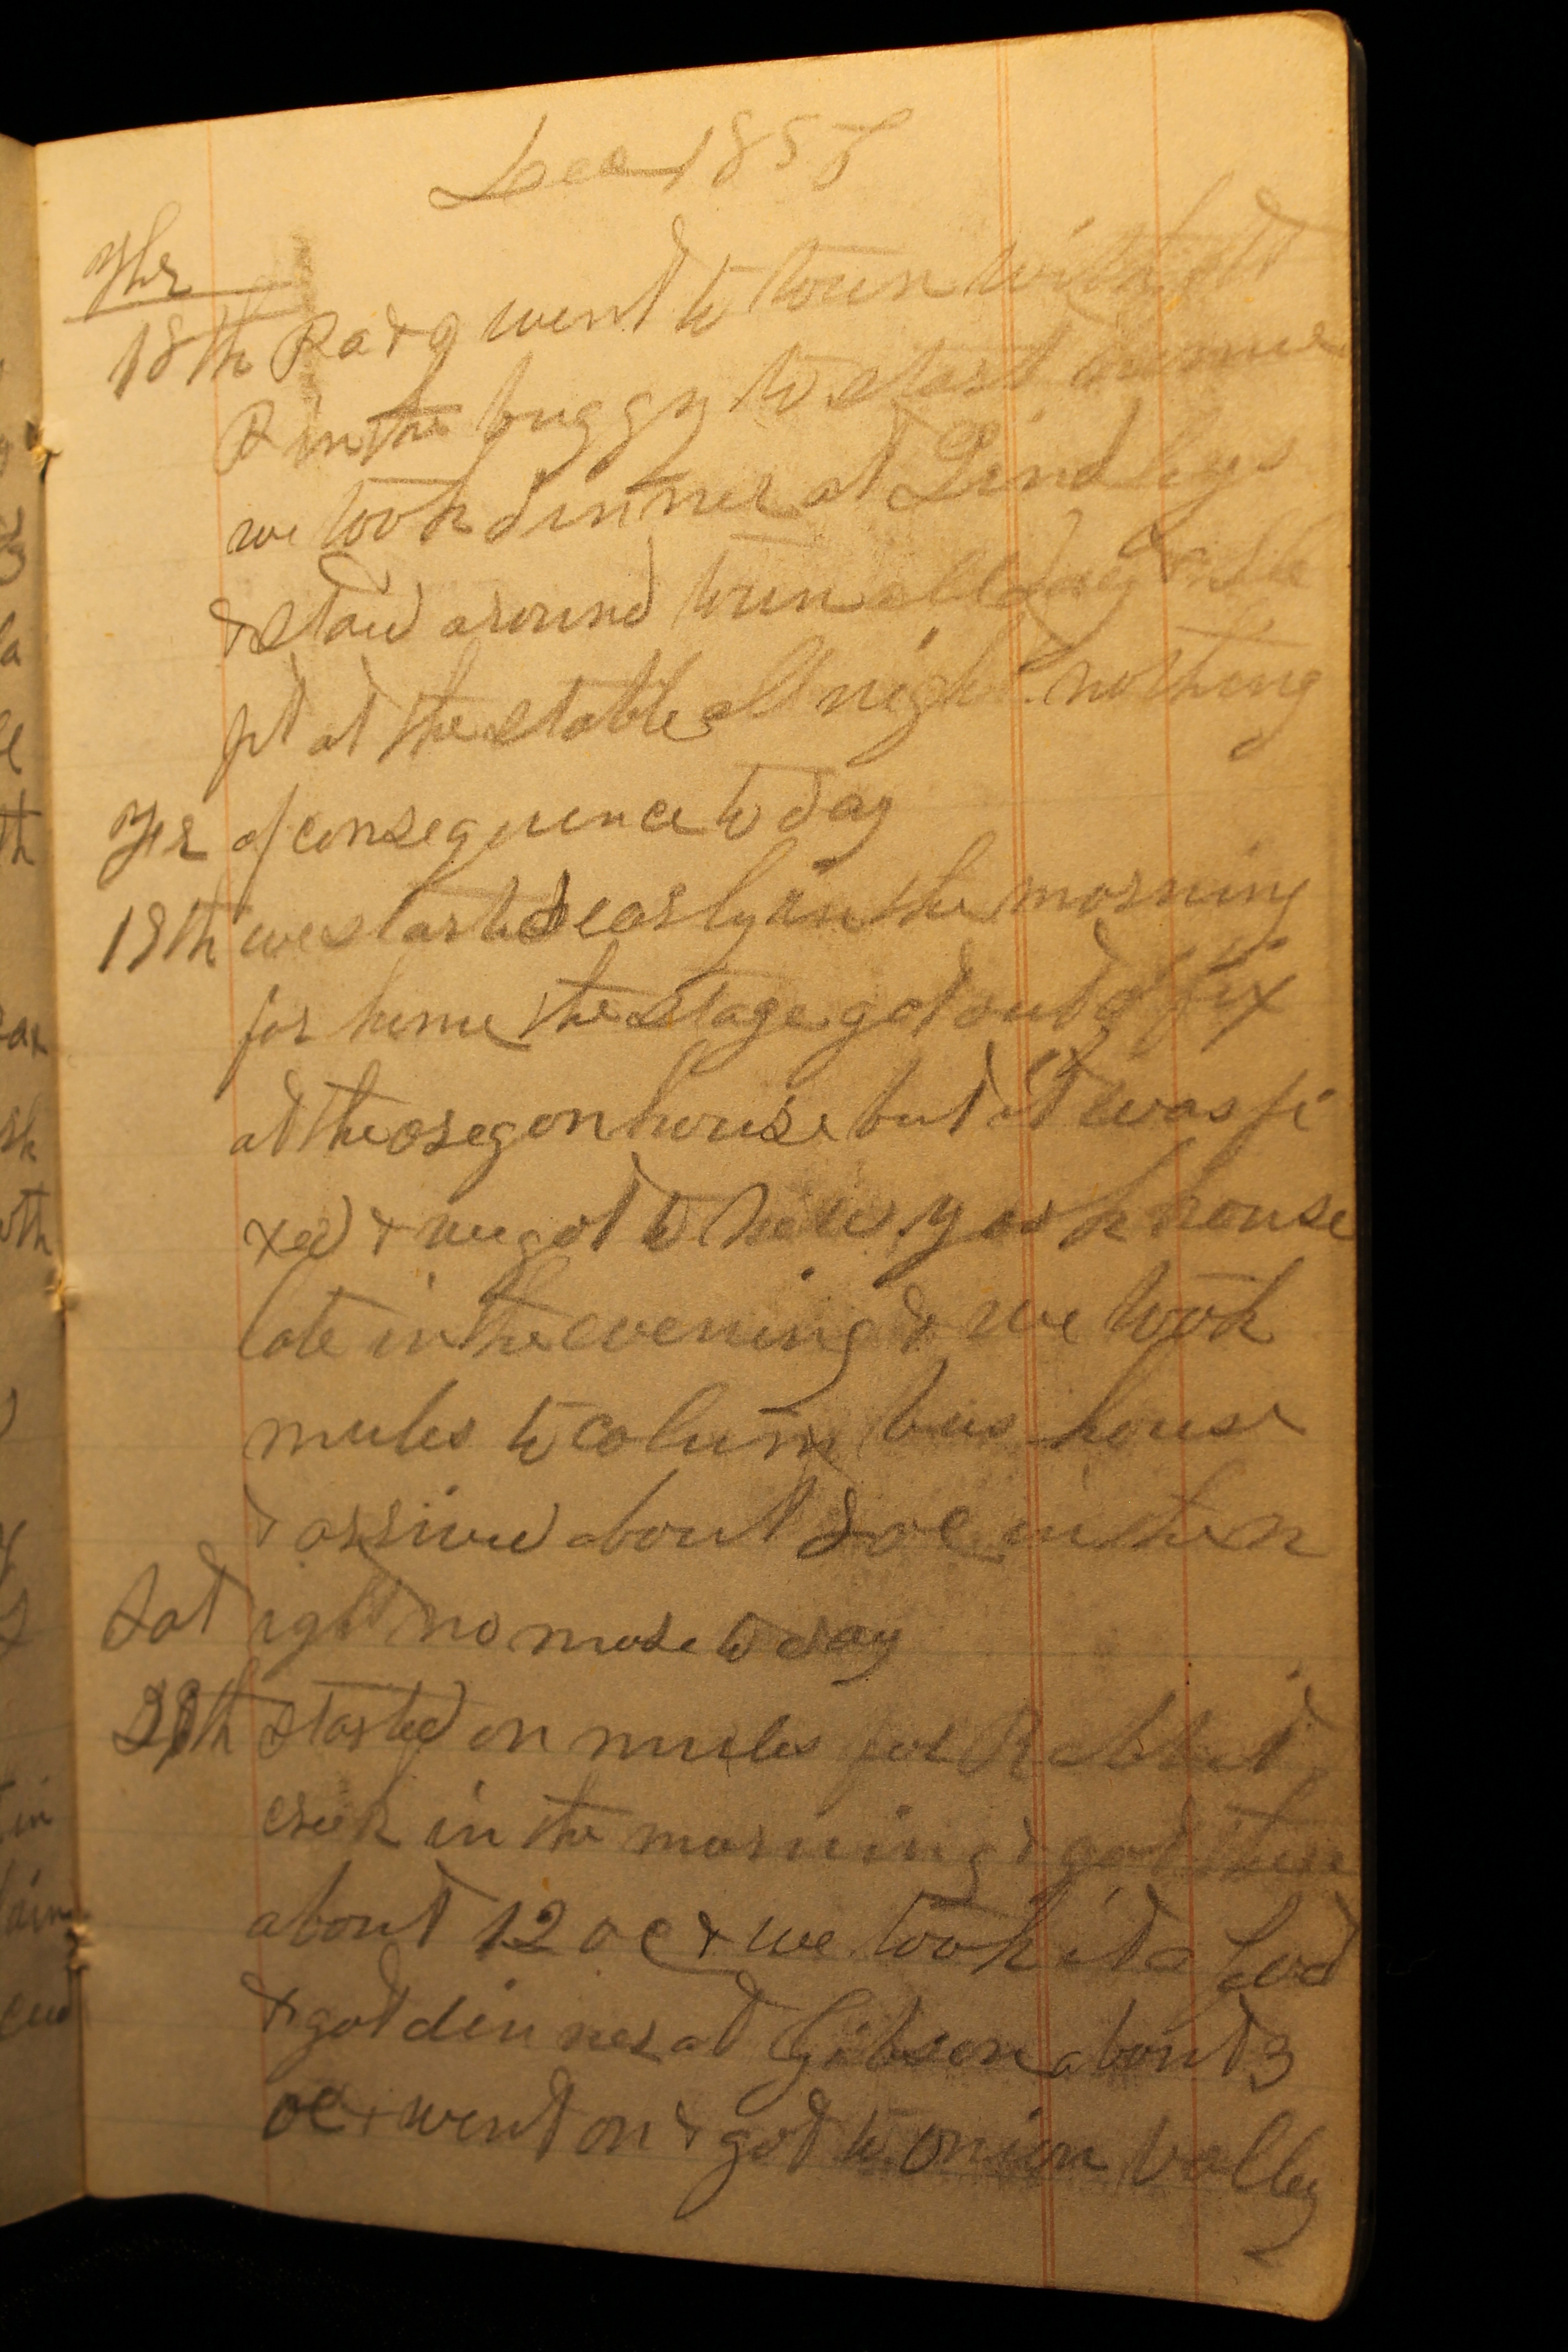 Dec 185
Thr
18th Pa & I went to town with old
R in the buggy to start home
we took dinner at Lindleys
& staid around town all day & sle
pt at the stable all night nothing
Fr of consequence to day
19th we started early in the morning
for home the stage got out of fix
at the oregon house but it was fi
xed & we got to New york house
late in the evening & we took
mules to Columbus house
& arrived about 8 oc in the n
Sat ight no more to day
20th started on mules for Rabbit
creek in the morning & got there
about 12 oc & we took it a food
& got dinner at Gibson about 3
oc & went on & got to onion valley